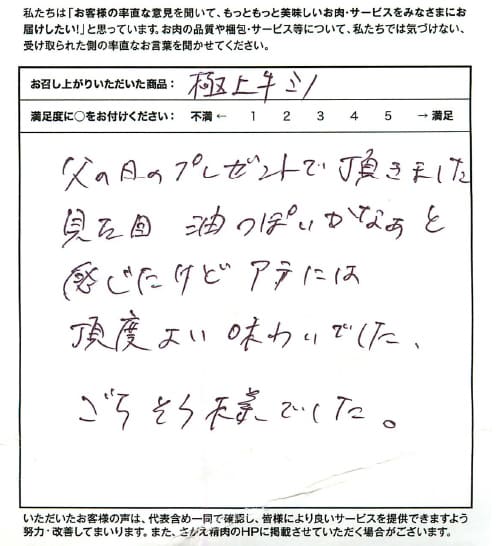 私たちは「お客様の率直な意見を聞いて、もっともっと美味しいお肉・サービスをみなさまにお
届けしたい！」と思っています。お肉の品質や梱包・サービス等について、私たちでは気づけない、
受け取られた側の率直なお言葉を聞かせてください。
お召し上がりいただいた商品： 極上牛ミノ
満足度に○をお付けください： 不満 ← 1 2 3 4 5 → 満足
父の日のプレゼントで頂きました
見た目 油っぽいかなぁと
感じたけど アテには
頂度よい味わいでした、
ごちそう様でした。
いただいたお客様の声は、代表含め一同で確認し、皆様により良いサービスを提供できますよう
努力・改善してまいります。また、さがえ精肉のHPに掲載させていただく場合がございます。